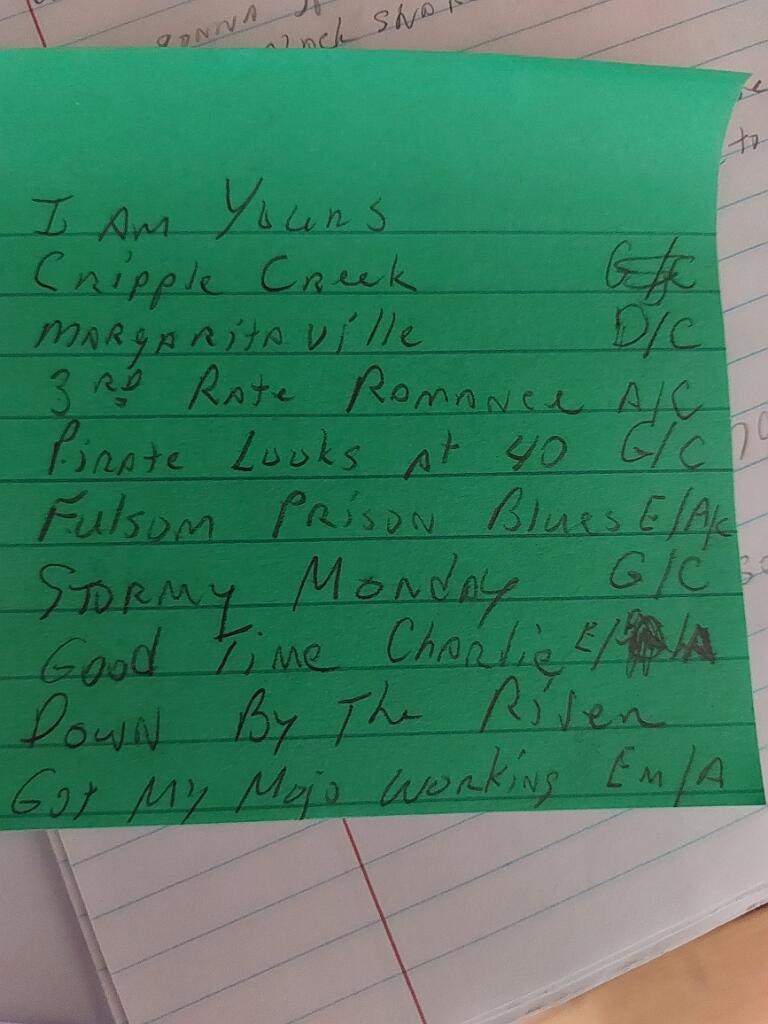 GONNA
I Am Yours
Cripple Creek G/C
MARgARitAville D/C
3RD Rate Romance A/C
Pirate Looks At 40 G/C
Fulsom Prison Blues E/A/c
Stormy Monday G/C
Good Time Charlie E/ /A
Down By The River
Got My Mojo Working Em/A
to